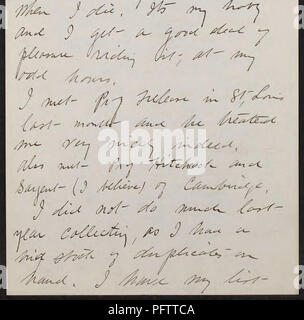 When I die. It's my hoby
and I get a good deal of
pleasure riding it, at my
odd hours.
I met Prof Trelease in St. Louis
last month and he treated
me very nicely indeed.
Also met Prof Hitchcock and
Sargent (I believe) of Cambridge.
I did not do much last
year collecting, as I have a
big stock of duplicates on
hand. I hand my list
PFTTCA